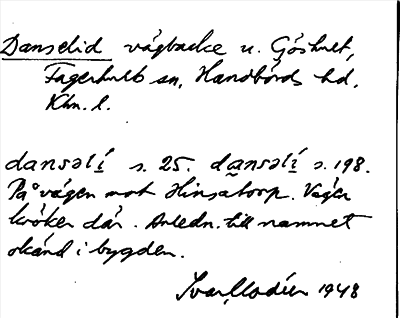 Danselid vägbacke u. Göshult,
Fagerhult sn, Handbörds hd,
Klm. l.
dansəlí s. 25. dansəlí s. 198.
På vägen mot Hinsatorp. Vägen
kröker där. Anledn. till namnet
okänd i bygden.
Ivar Modéer 1948